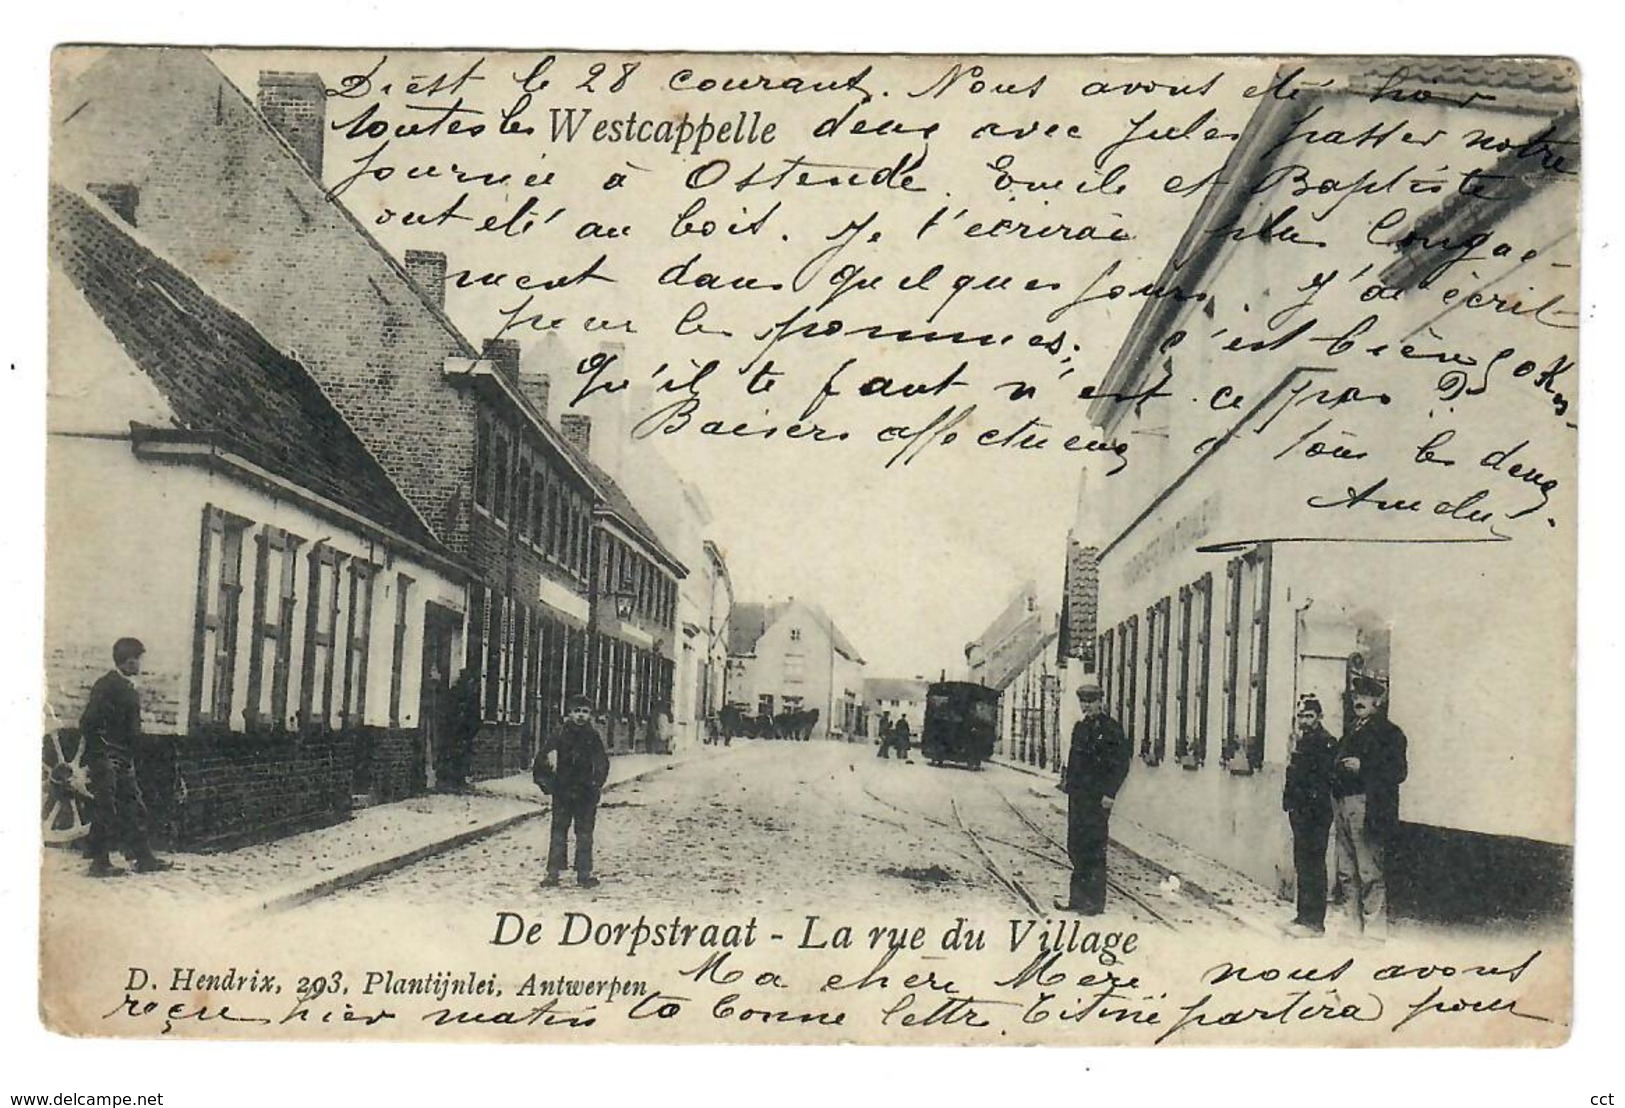 Diest le 28 courant. Nous avons eté hier
toutes les Westcappelle deux avec Jules passer notre
journée à Ostende. Emile et Baptiste
ont eté au bois. Je t'écrirai plus longue-
ment dans quelques jours. J'ai écrit
pour les pommes; c'est bien 50 Kos
qu'il te faut n'est ce pas?
Baisers affectueux à tous les deux.
De Dorpstraat - La rue du Village
D. Hendrix, 293, Plantijnlei, Antwerpen
Ma chère Mère nous avons
reçu hier matin ta bonne lettre. Titine partira pour
www.delcampe.net
cct